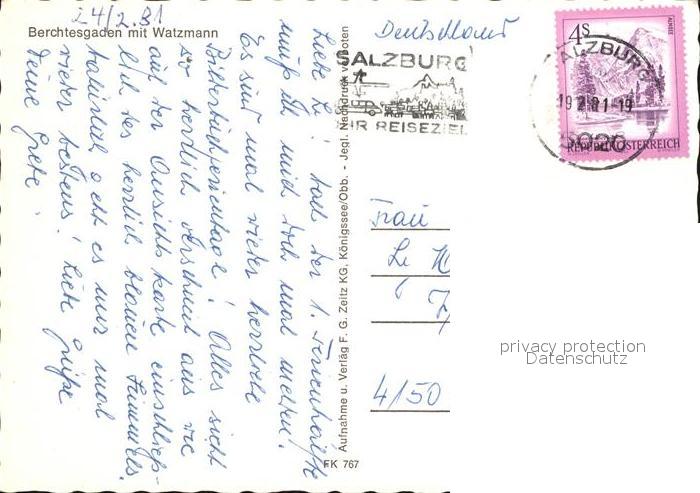 24/2.81
Berchtesgaden mit Watzmann
Liebe Le! Nach der 1. Ferienhälfte
muß ich mich doch mal melden!
Es sind mal wieder herrliche
Bilderbuchferientage! Alles sieht
so herrlich verschneit aus wie
auf der Ansichtskarte einschließ-
lich des herrlich blauen Himmels.
geht es mir mal
wieder bestens! Liebe Grüße
Deine Grete.
Aufnahme u. Verlag F. G. Zeitz KG., Königssee/Obb. - Jegl. Nachdruck verboten
FK 767
Deutschland
SALZBURG
IHR REISEZIEL
SALZBURG
19.2.81-19
5020
4S
ALMSEE
REPUBLIK ÖSTERREICH
Frau
Le
4150
privacy protection
Datenschutz